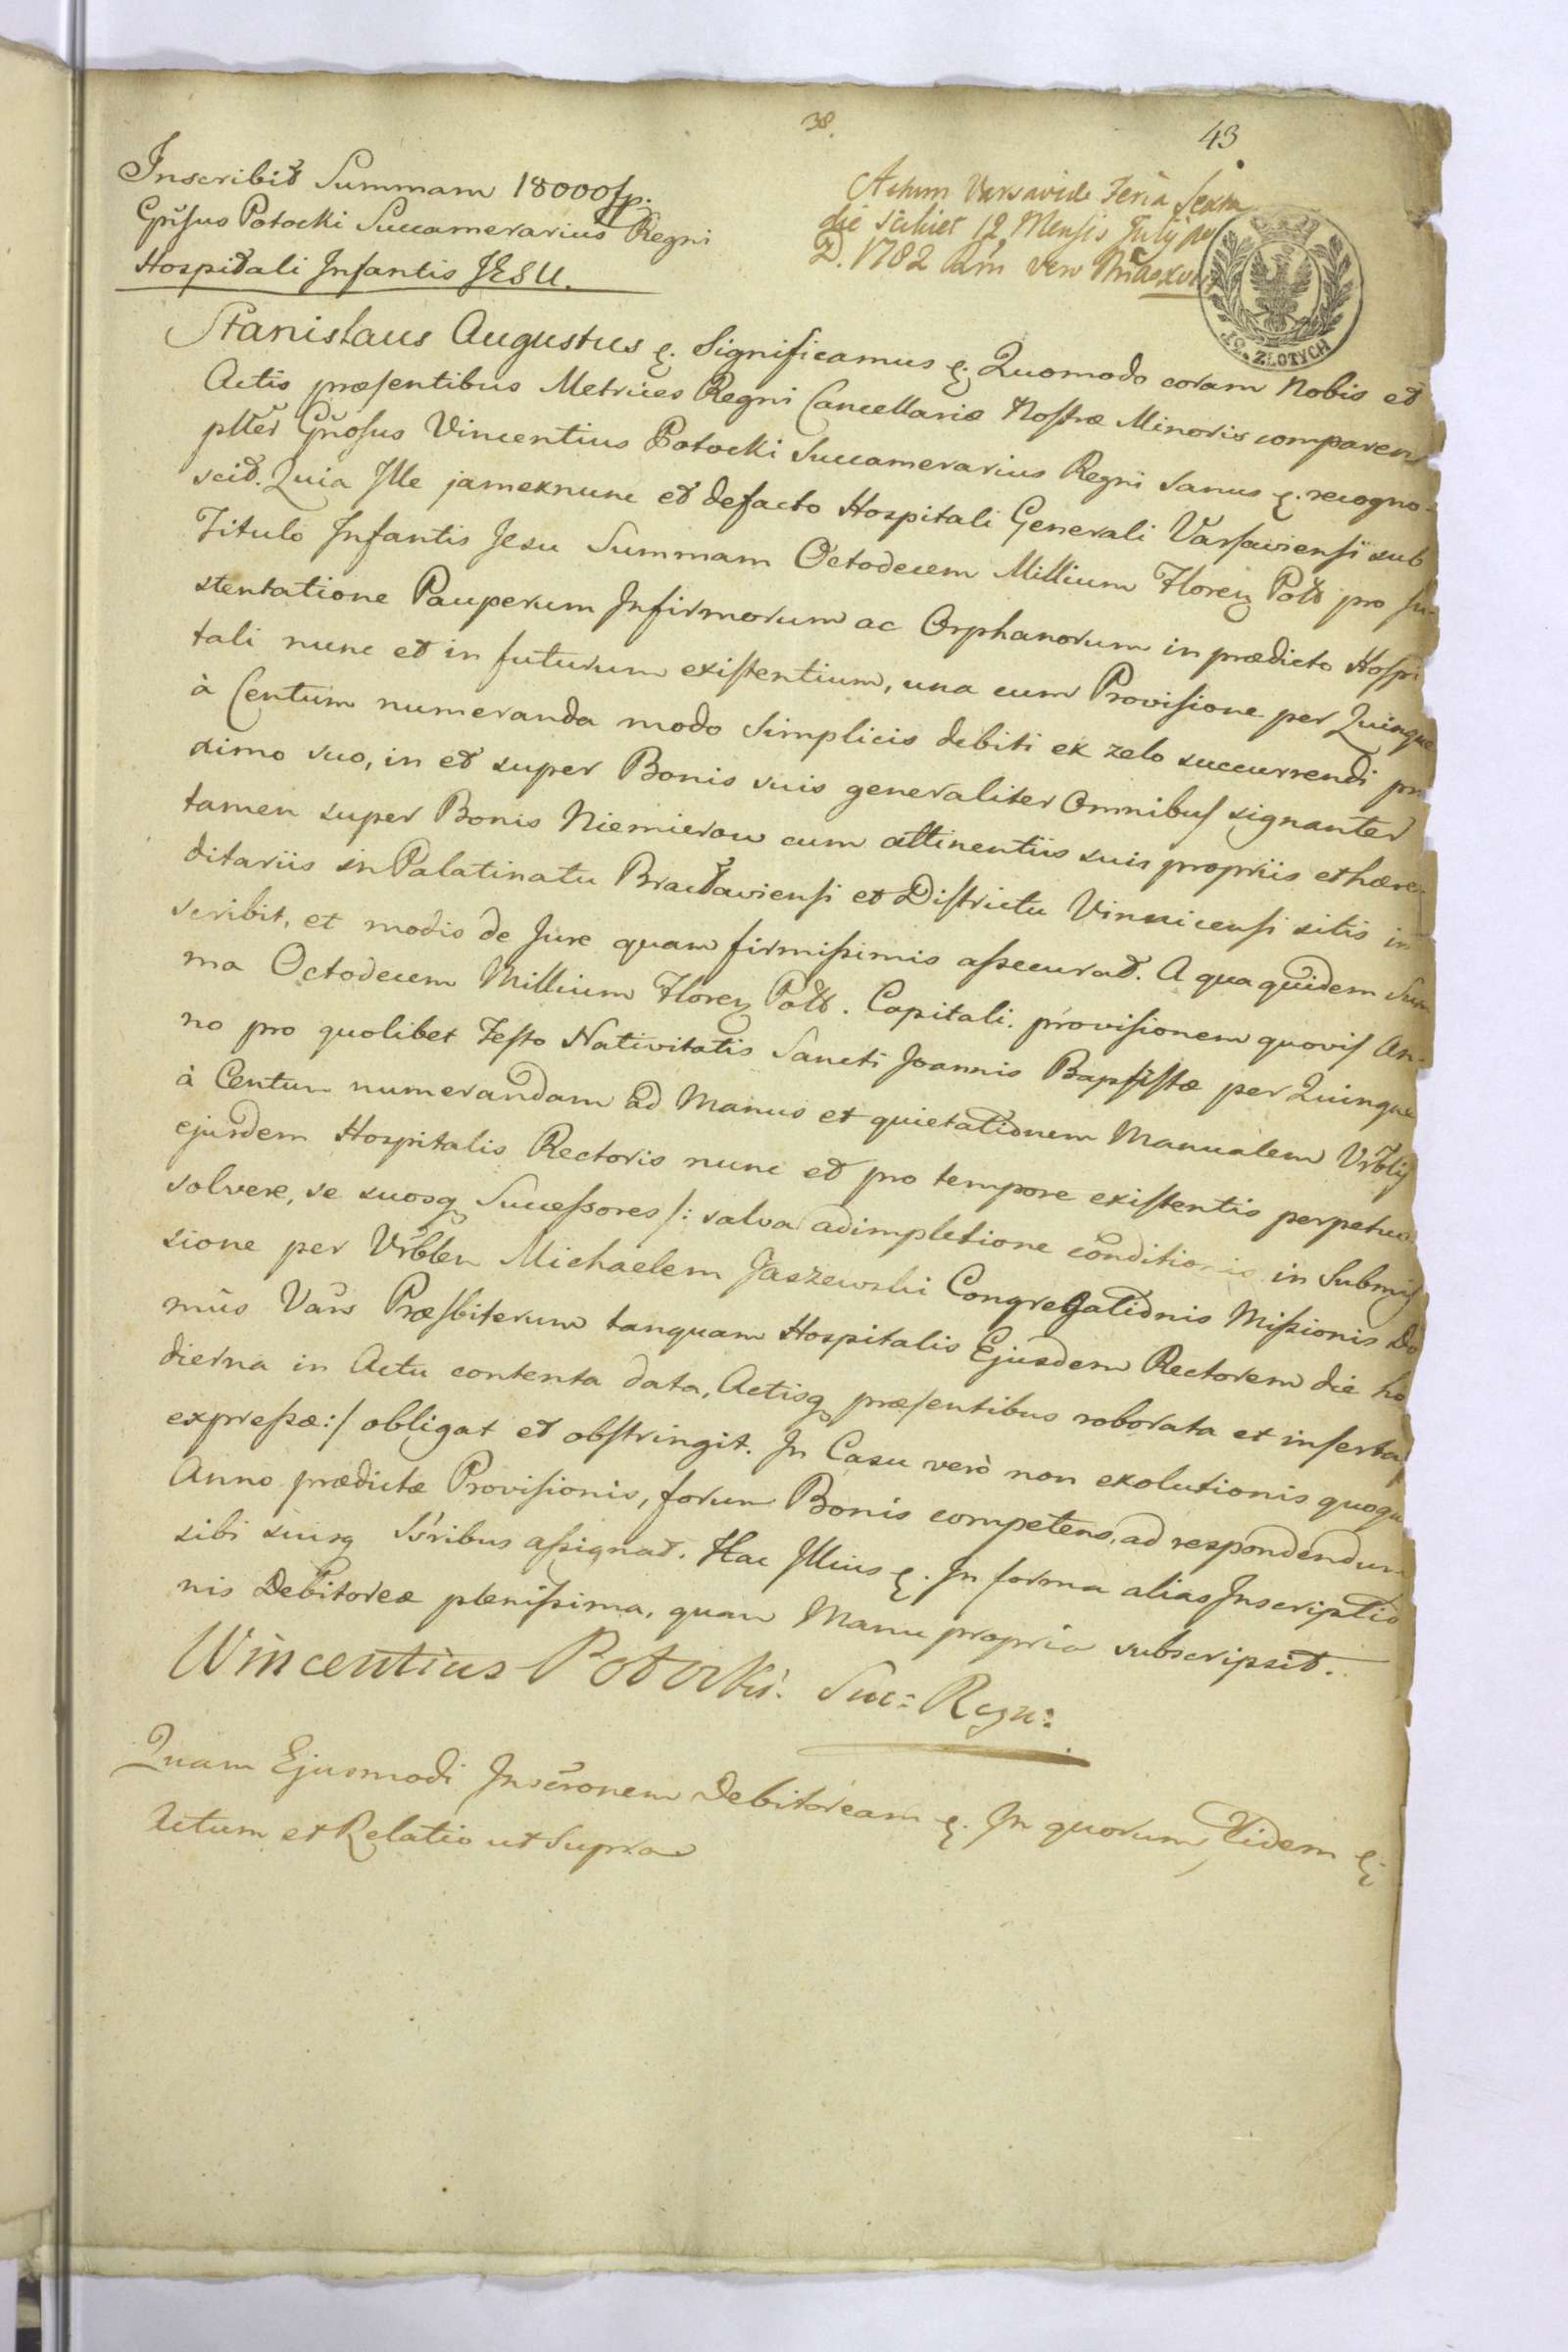 38.
43
Inscribit Summam 18000 fp.
Gn̄sus Potocki Succamerarius Regni
Hospitali Infantis JESU.
Actum Varsaviæ Feria Sexta
die scilicet 12 Mensis July
D. 1782
12. ZŁOTYCH
Stanislaus Augustus &. Significamus &. Quomodo coram Nobis et
Actis præsentibus Metrices Regni Cancellariæ Nostræ Minoris comparens
pltēr Gn̄osus Vincentius Potocki Succamerarius Regni sanus &. recogno-
scit. Quia Ille jam exnunc et defacto Hospitali Generali Varsaviensi sub
Titulo Infantis Jesu Summam Octodecem Millium Floren Polł pro su-
stentatione Pauperum Infirmorum ac Orphanorum in prædicto Hospi-
tali nunc et in futurum existentium, una cum Provisione per Quinque
à Centum numeranda modo Simplicis debiti ex zelo succurrendi pro
ximo suo, in et super Bonis suis generaliter Omnibus signanter
tamen super Bonis Niemierow cum attinentiis suis propriis et hære-
ditariis in Palatinatu Bracłaviensi et Districtu Vinnicensi sitis in
scribit, et modis de Jure quam firmissimis assecurat. A qua quidem Sum
ma Octodecem Millium Floren Polł. Capitali. provisionem quovis An-
no pro quolibet Festo Nativitatis Sancti Joannis Baptistæ per Quinque
à Centum numerandam ad Manus et quietationem Manualem Vrblis
ejusdem Hospitalis Rectoris nunc et pro tempore existentis perpetuo
solvere, se suosq Successores /: salva adimpletione conditionis in Submis
sione per Vrblen Michaelem Jaszewski Congregationis Missionis Do
mus Vārs Præsbiterum tanquam Hospitalis Ejusdem Rectorem die ho
dierna in Actu contenta data, Actisq præsentibus roborata et inserta
expressæ :/ obligat et obstringit. In Casu verò non exolutionis quoqu
Anno prædictæ Provisionis, forum Bonis competens, ad respondendum
sibi suisq Ss̄ribus assignat. Hac Illius &. In forma alias Inscriptio
nis Debitoreæ plenissima, quam Manu propria subscripsit.
Wincentius Potocki. Suc: Regn:
Quam Ejusmodi Inscrōnem Debitoream &. In quorum Fidem &:
Actum et Relatio ut Supra